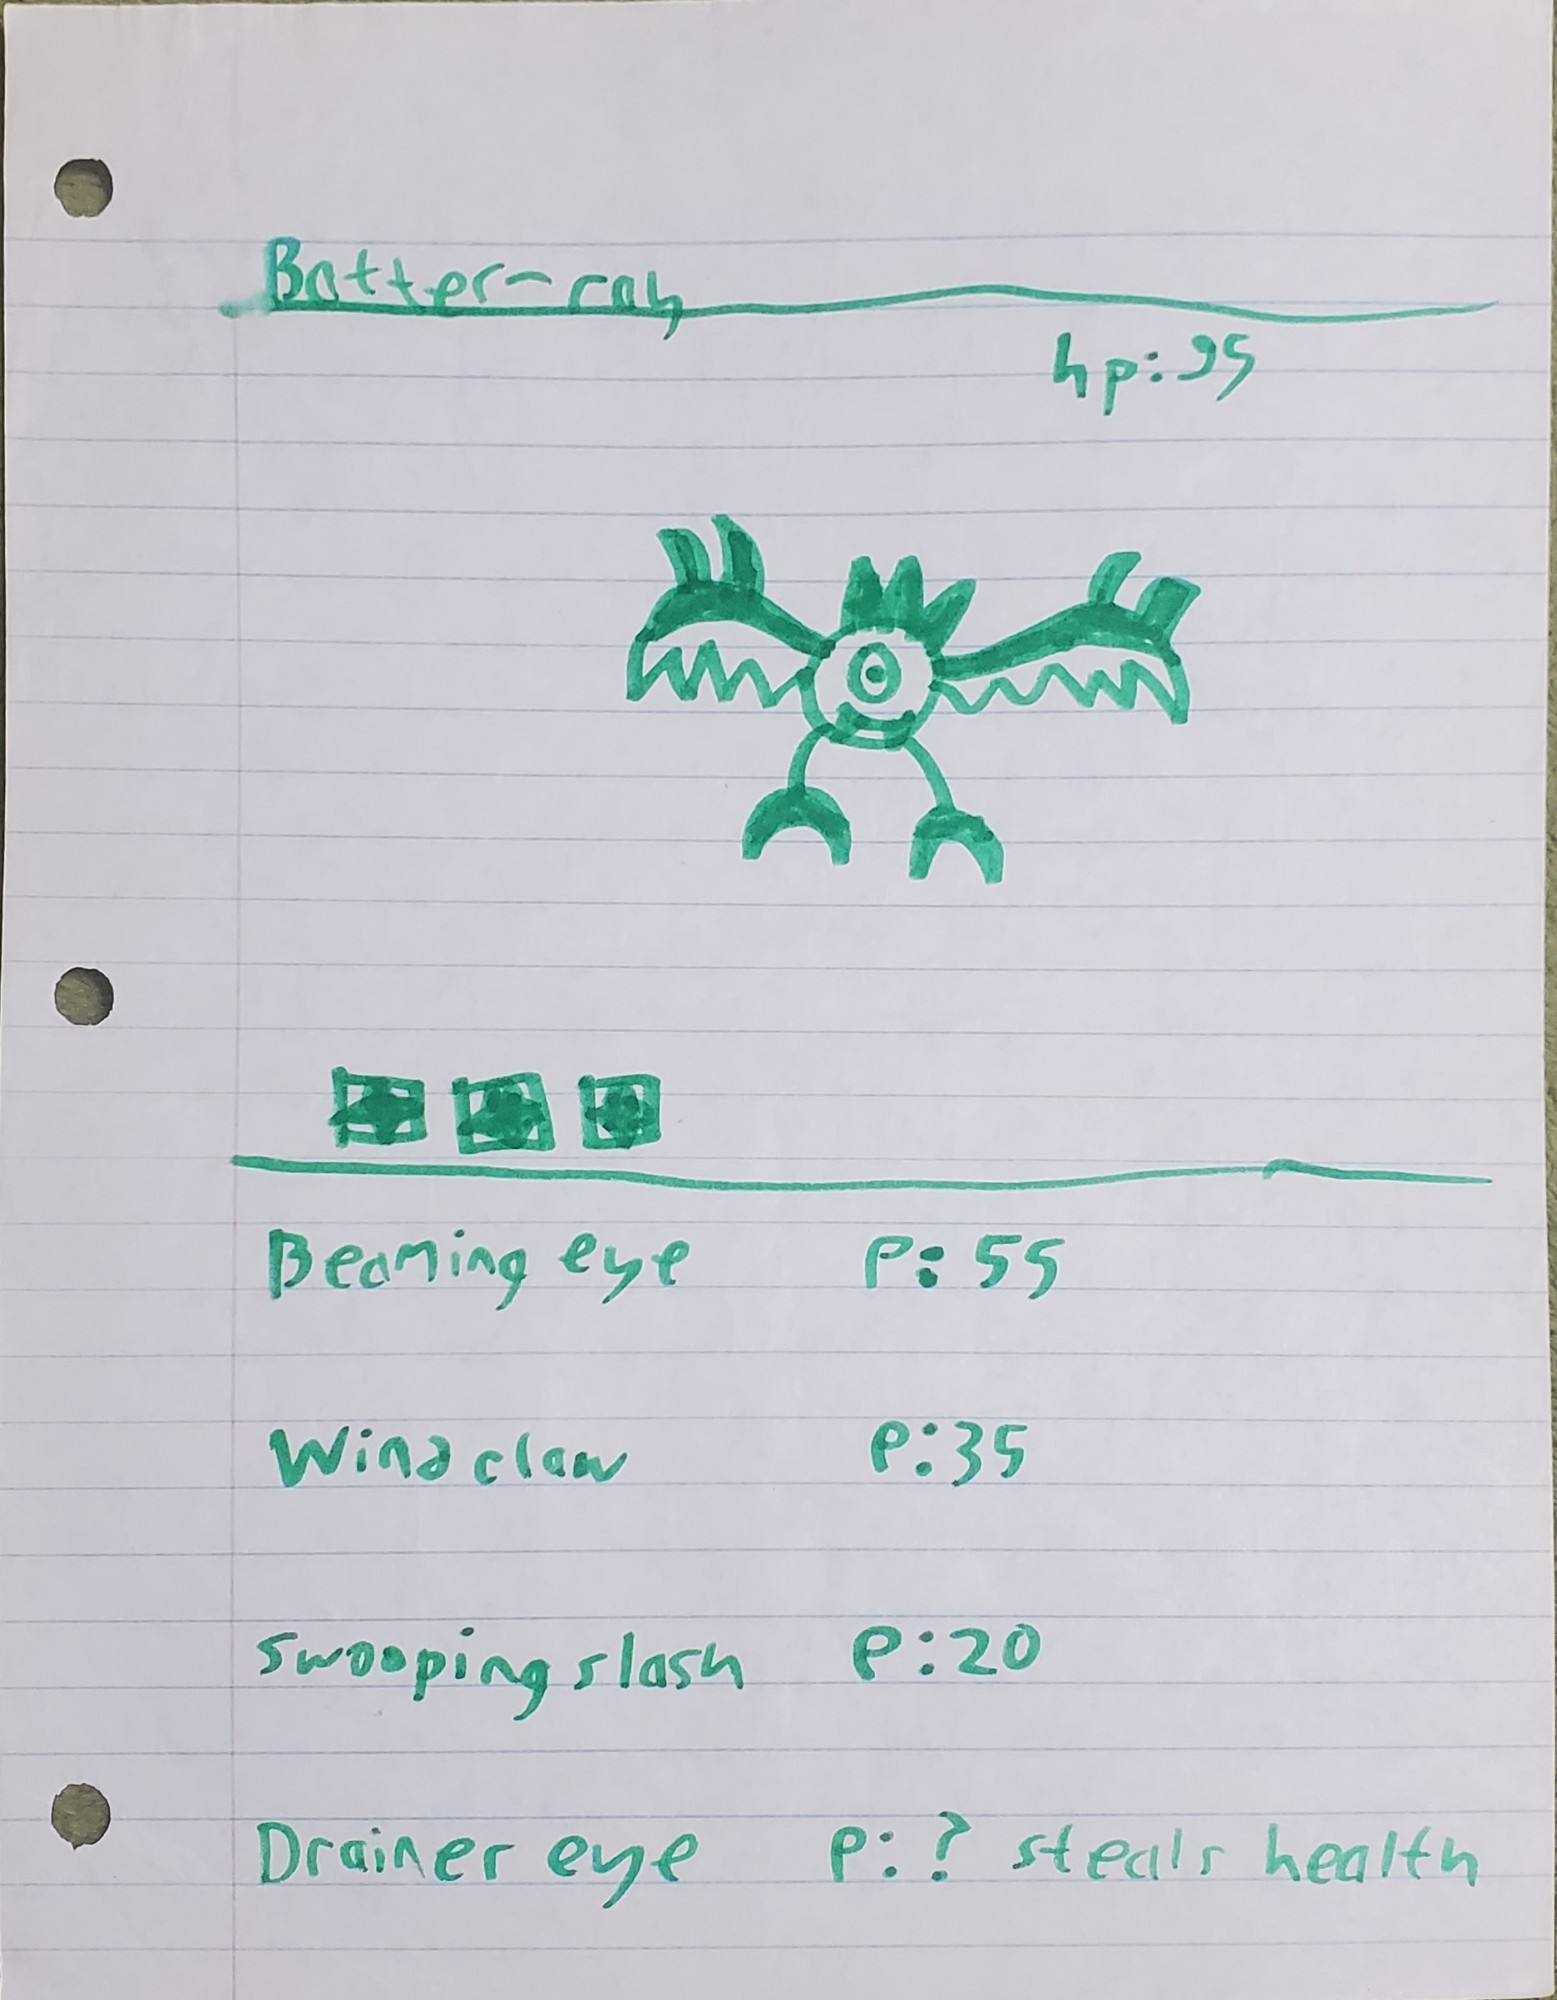 Batter-ray
hp:95
Beaming eye P: 55
Wind claw P:35
Swooping slash P:20
Drainer eye P:? steals health